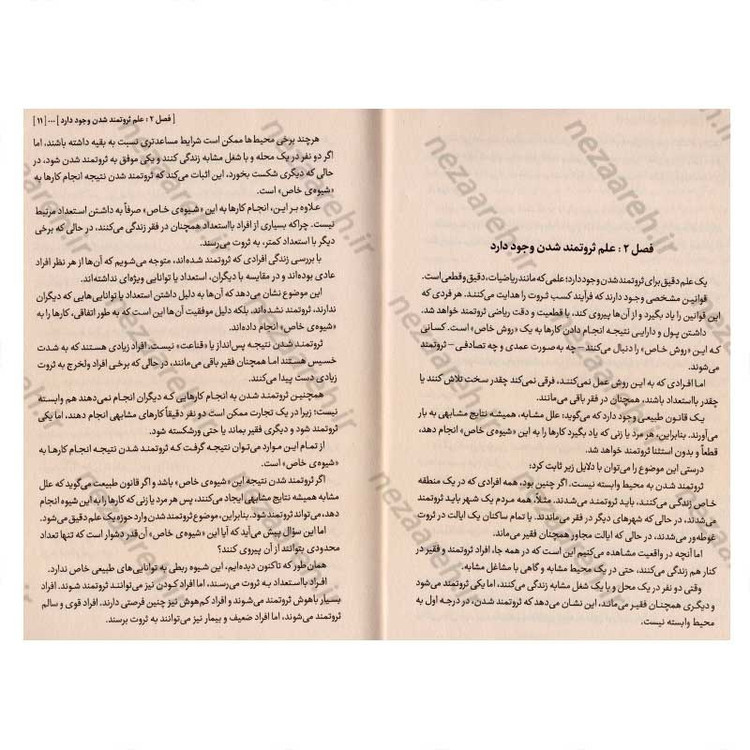 فصل ۲ : علم ثروتمند شدن وجود دارد
یک علم دقیق برای ثروتمند شدن وجود دارد؛ علمی که مانند ریاضیات، دقیق و قطعی است.
قوانین مشخصی وجود دارند که فرآیند کسب ثروت را هدایت می‌کنند. هر فردی که
این قوانین را یاد بگیرد و از آن‌ها پیروی کند، با قطعیت و دقت ریاضی ثروتمند خواهد شد.
داشتن پول و دارایی نتیجه انجام دادن کارها به یک «روش خاص» است. کسانی
که این «روش خاص» را دنبال می‌کنند – چه به صورت عمدی و چه تصادفی – ثروتمند
می‌شوند.
اما افرادی که به این روش عمل نمی‌کنند، فرقی نمی‌کند چقدر سخت تلاش کنند یا
چقدر بااستعداد باشند، همچنان در فقر باقی می‌مانند.
یک قانون طبیعی وجود دارد که می‌گوید: علل مشابه، همیشه نتایج مشابهی به بار
می‌آورند. بنابراین، هر مرد یا زنی که یاد بگیرد کارها را به این «شیوه‌ی خاص» انجام دهد،
قطعاً و بدون استثنا ثروتمند خواهد شد.
درستی این موضوع را می‌توان با دلایل زیر ثابت کرد:
ثروتمند شدن به محیط وابسته نیست. اگر چنین بود، همه افرادی که در یک منطقه
خاص زندگی می‌کنند، باید ثروتمند می‌شدند. مثلاً، همه مردم یک شهر باید ثروتمند
می‌شدند، در حالی که شهرهای دیگر در فقر می‌ماندند. یا تمام ساکنان یک ایالت در ثروت
غوطه‌ور می‌شدند، در حالی که ایالت مجاور همچنان فقیر می‌ماند.
اما آنچه در واقعیت مشاهده می‌کنیم این است که در همه جا، افراد ثروتمند و فقیر در
کنار هم زندگی می‌کنند، حتی در یک محیط مشابه و گاهی با مشاغل مشابه.
وقتی دو نفر در یک محل و با یک شغل مشابه زندگی می‌کنند، اما یکی ثروتمند می‌شود
و دیگری همچنان فقیر می‌ماند، این نشان می‌دهد که ثروتمند شدن، در درجه اول به
محیط وابسته نیست.
[ فصل ۲ : علم ثروتمند شدن وجود دارد ] ... [ ۱۱ ]
هرچند برخی محیط‌ها ممکن است شرایط مساعدتری نسبت به بقیه داشته باشند، اما
اگر دو نفر در یک محله و با شغل مشابه زندگی کنند و یکی موفق به ثروتمند شدن شود، در
حالی که دیگری شکست بخورد، این اثبات می‌کند که ثروتمند شدن نتیجه انجام کارها به
«شیوه‌ی خاص» است.
علاوه بر این، انجام کارها به این «شیوه‌ی خاص» صرفاً به داشتن استعداد مرتبط
نیست. چراکه بسیاری از افراد بااستعداد همچنان در فقر زندگی می‌کنند، در حالی که برخی
دیگر با استعداد کمتر، به ثروت می‌رسند.
با بررسی زندگی افرادی که ثروتمند شده‌اند، متوجه می‌شویم که آن‌ها از هر نظر افراد
عادی بوده‌اند و در مقایسه با دیگران، استعداد یا توانایی ویژه‌ای نداشته‌اند.
این موضوع نشان می‌دهد که آن‌ها به دلیل داشتن استعداد یا توانایی‌هایی که دیگران
ندارند، ثروتمند نشده‌اند، بلکه دلیل موفقیت آن‌ها این است که به طور اتفاقی، کارها را به
«شیوه‌ی خاص» انجام داده‌اند.
ثروتمند شدن نتیجه پس‌انداز یا «قناعت» نیست. افراد زیادی هستند که به شدت
خسیس هستند اما همچنان فقیر باقی می‌مانند، در حالی که برخی افراد ولخرج به ثروت
زیادی دست پیدا می‌کنند.
همچنین ثروتمند شدن به انجام کارهایی که دیگران انجام نمی‌دهند هم وابسته
نیست؛ زیرا در یک تجارت ممکن است دو نفر دقیقاً کارهای مشابهی انجام دهند، اما یکی
ثروتمند شود و دیگری فقیر بماند یا حتی ورشکسته شود.
از تمام این موارد می‌توان نتیجه گرفت که ثروتمند شدن نتیجه انجام کارها به
«شیوه‌ی خاص» است.
اگر ثروتمند شدن نتیجه این «شیوه‌ی خاص» باشد و اگر قانون طبیعت می‌گوید که علل
مشابه همیشه نتایج مشابهی ایجاد می‌کنند، پس هر مرد یا زنی که کارها را به این شیوه انجام
دهد، می‌تواند ثروتمند شود. بنابراین، موضوع ثروتمند شدن وارد حوزه «یک علم دقیق می‌شود.
اما این سؤال پیش می‌آید که آیا این «شیوه‌ی خاص» آن‌قدر دشوار است که تنها تعداد
محدودی بتوانند از آن پیروی کنند؟
همان‌طور که تاکنون دیده‌ایم، این شیوه ربطی به توانایی‌های طبیعی خاص ندارد.
افراد بااستعداد به ثروت می‌رسند، اما افراد کودن نیز می‌توانند ثروتمند شوند. افراد
بسیار باهوش ثروتمند می‌شوند و افراد کم‌هوش نیز چنین فرصتی دارند. افراد قوی و سالم
ثروتمند می‌شوند، اما افراد ضعیف و بیمار نیز می‌توانند به ثروت برسند.
nezaareh.ir